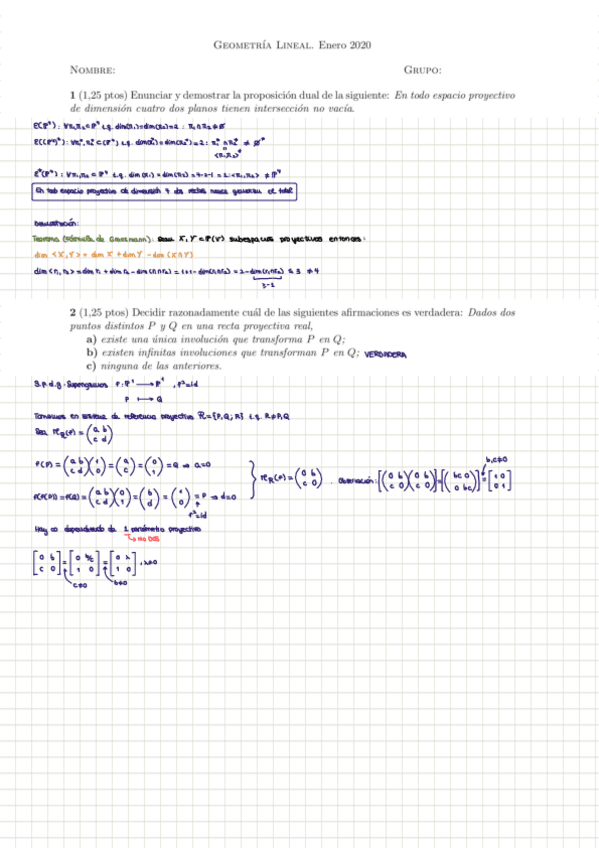 GEOMETRÍA LINEAL. Enero 2020
NOMBRE: GRUPO:
1 (1,25 ptos) Enunciar y demostrar la proposición dual de la siguiente: En todo espacio proyectivo
de dimensión cuatro dos planos tienen intersección no vacía.
En todo espacio proyectivo de dimensión 4 dos rectas nunca generan el total
Demostración:
Teorema (Fórmula de Grassmann): Sean X, Y ⊂ P(V) subespacios proyectivos entonces:
dim <X,Y> = dim X + dim Y - dim (X∩Y)
dim <r₁, r₂> = dim r₁ + dim r₂ - dim (r₁∩r₂) = 1+1 - dim(r₁∩r₂) = 2 - dim(r₁∩r₂) ≤ 3 ≠ 4
≥-1
2 (1,25 ptos) Decidir razonadamente cuál de las siguientes afirmaciones es verdadera: Dados dos
puntos distintos P y Q en una recta proyectiva real,
a) existe una única involución que transforma P en Q;
b) existen infinitas involuciones que transforman P en Q; VERDADERA
c) ninguna de las anteriores.
S.p.d.g. Supongamos f: P¹ → P¹ , f²=id
P ↦ Q
Tomamos un sistema de referencia proyectivo R={P,Q;R} t.q. R≠P,Q
Sea M_R(f) = (a b
c d)
f(P) = (a b; c d)(1; 0) = (a; c) = (0; 1) = Q ⇒ a=0
f(f(P)) = f(Q) = (a b; c d)(0; 1) = (b; d) = (1; 0) = P ⇒ d=0
f²=id
M_R(f) = (0 b; c 0) . Observación: [(0 b; c 0)(0 b; c 0)] = [(bc 0; 0 bc)] = [1 0; 0 1]
b,c≠0
Hay ∞ dependiendo de 1 parámetro proyectivo
↳ NO DOS
[0 b; c 0] = [0 b/c; 1 0] = [0 λ; 1 0] , λ≠0
c≠0 b≠0